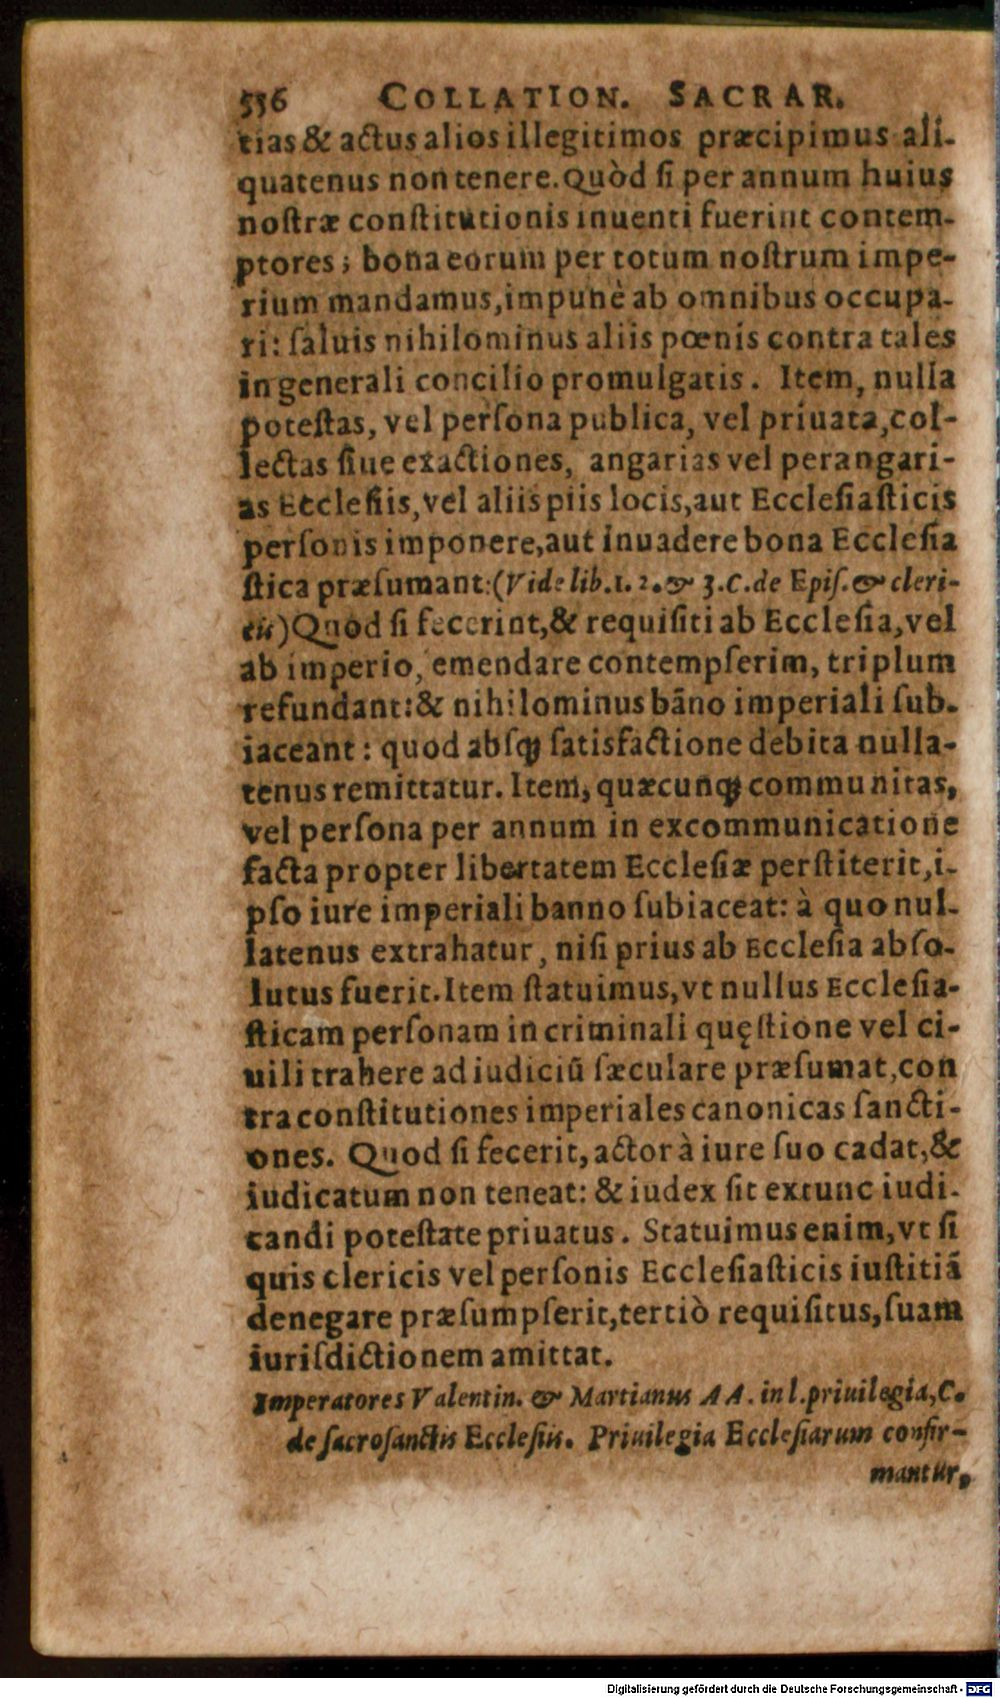 536 COLLATION. SACRAR.
tias & actus alios illegitimos præcipimus ali-
quatenus non tenere. Quòd ſi per annum huius
noſtræ conſtitutionis inuenti fuerint contem-
ptores; bona eorum per totum noſtrum impe-
rium mandamus, impunè ab omnibus occupa-
ri: ſaluis nihilominus aliis pœnis contra tales
in generali concilio promulgatis. Item, nulla
poteſtas, vel perſona publica, vel priuata, col-
lectas ſiue exactiones, angarias vel perangari-
as Eccleſiis, vel aliis piis locis, aut Eccleſiaſticis
perſonis imponere, aut inuadere bona Eccleſia
ſtica præſumant: (Vide lib. 1. 2. & 3. C. de Epiſ. & cleri-
cis) Quòd ſi fecerint, & requiſiti ab Eccleſia, vel
ab imperio, emendare contempſerim, triplum
refundant: & nihilominus bãno imperiali ſub-
iaceant: quod abſq; ſatisfactione debita nulla-
tenus remittatur. Item, quæcunq; communitas,
vel perſona per annum in excommunicatione
facta propter libertatem Eccleſiæ perſtiterit, i-
pſo iure imperiali banno ſubiaceat: à quo nul-
latenus extrahatur, niſi prius ab Eccleſia abſo-
lutus fuerit. Item ſtatuimus, vt nullus Eccleſia-
ſticam perſonam in criminali quęſtione vel ci-
uili trahere ad iudiciũ ſæculare præſumat, con
tra conſtitutiones imperiales canonicas ſancti-
ones. Quod ſi fecerit, actor à iure ſuo cadat, &
iudicatum non teneat: & iudex ſit extunc iudi-
candi poteſtate priuatus. Statuimus enim, vt ſi
quis clericis vel perſonis Eccleſiaſticis iuſtitiã
denegare præſumpſerit, tertiò requiſitus, ſuam
iuriſdictionem amittat.
Imperatores Valentin. & Martianus AA. in l. priuilegia, C.
de ſacroſanctis Eccleſiis. Priuilegia Eccleſiarum confir-
mantur,
Digitalisierung gefördert durch die Deutsche Forschungsgemeinschaft - DFG